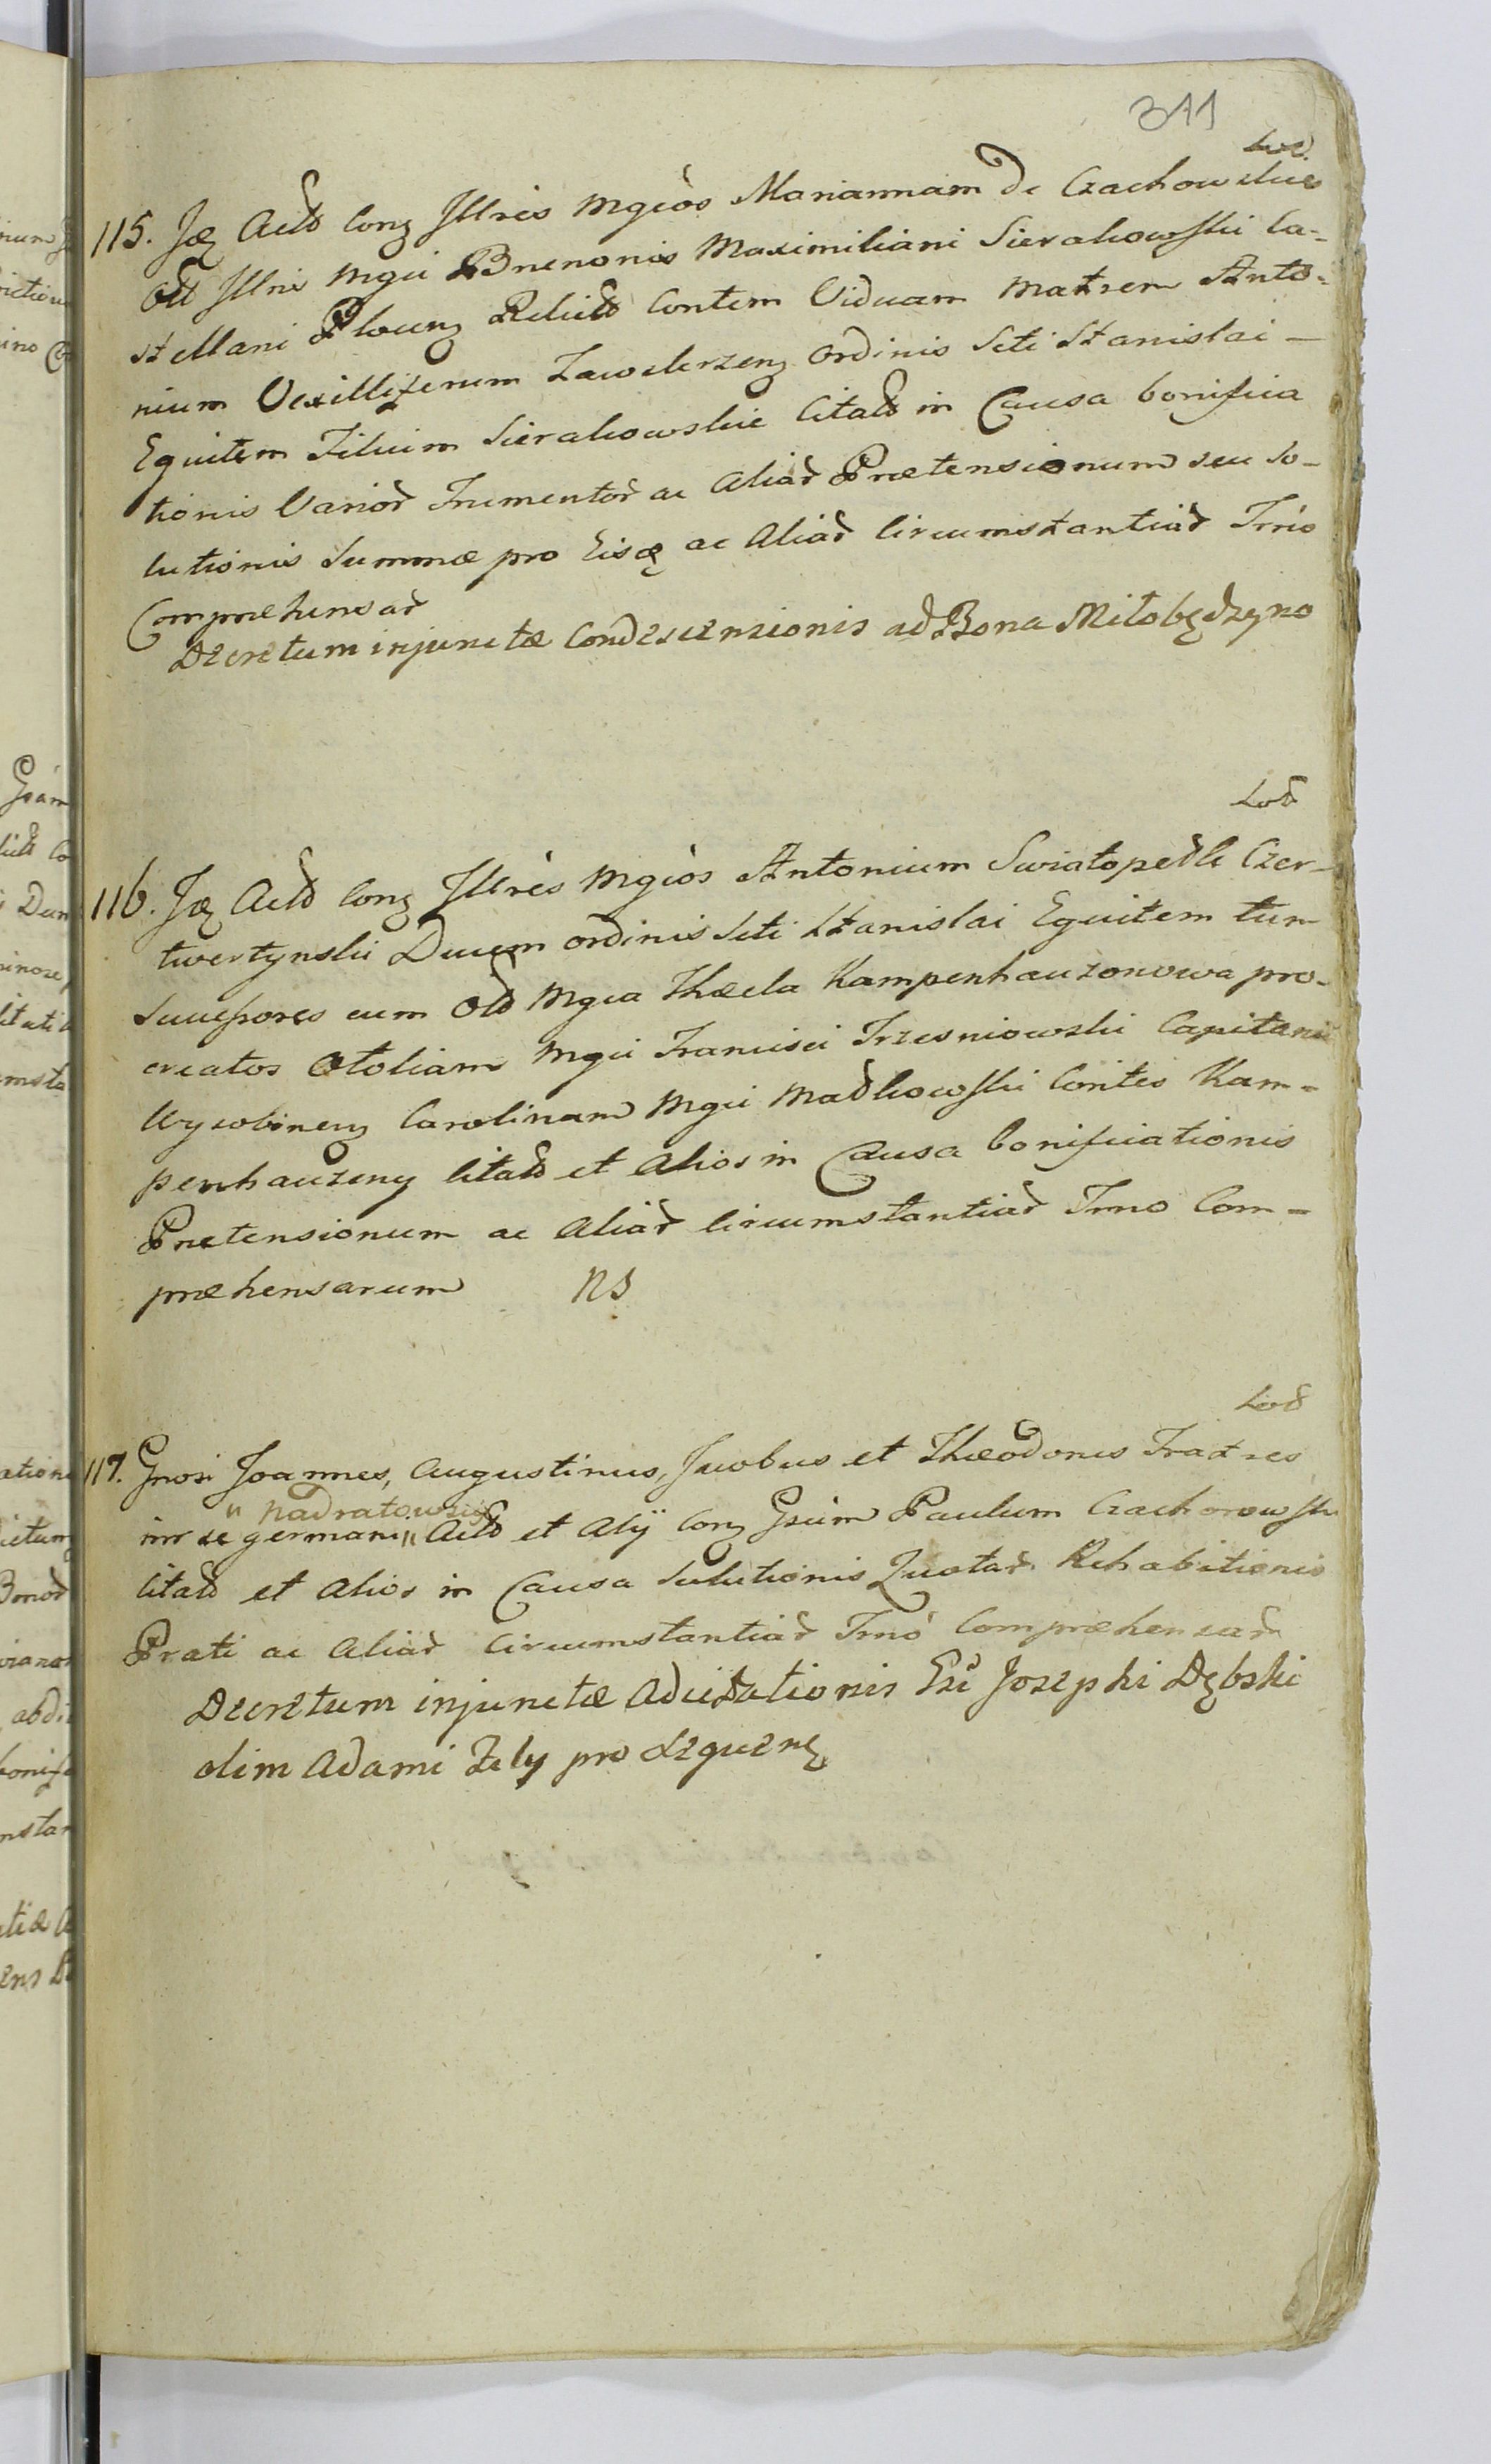 311
115. Jdẽ Actõ Conž Jllres Mgeòs Mariannam de Czachowskie
Olĩ Jllris Mgci Brunonis Maximiliani Sierakowski Ca-
stellani Plocenž Relictõ Contem Viduam Matrem Anto-
nium Vexilliferum Zawskrzenž Ordinis Scti Stanislai —
Equitem Filium Sierakowskie Citatõ in Causa bonifica
tionis Varior̃ Frumentor̃ ac Aliar̃ Prætensionum seu So-
lutionis Summæ pro Eisdẽ ac Aliar̃ Circumstantiar̃ Trno
Compræhensar̃
Decretum injunctæ Condescensionis ad Bona Miłobędzyno
116. Jdẽ Actõ Conž Jllrès Mgeòs Antonium Swiatopełk Czer-
twertynski Ducem ordinis Scti Stanislai Equitem tum
Successores cum Olĩ Mgca Thecla Kampenhauzonowa pro-
creatos Otoliam Mgci Francisci Trzesniowski Capitanei
Carolinam Mgci Madkowski Contes Kam-
penhauzenž Citatõ et Alios in Causa bonificationis
Prætensionum ac Aliar̃ Circumstantiar̃ Trno Com-
præhensarum NS
117. Gnosi Joannes, Augustinus, Jacobus et Theodorus Fratres
" Nadratowscy
inr se germani " Actõ et Alÿ Conž Gsum Paulum Czachorowski
Citatõ et Alios in Causa Solutionis Quotar̃ Rehabitionis
Prati ac Aliar̃ Circumstantiar̃ Trnò Comprehensar̃
Decretum injunctæ Adcitationis Josephi Dębski
olim Adami Fily pro Sequenž